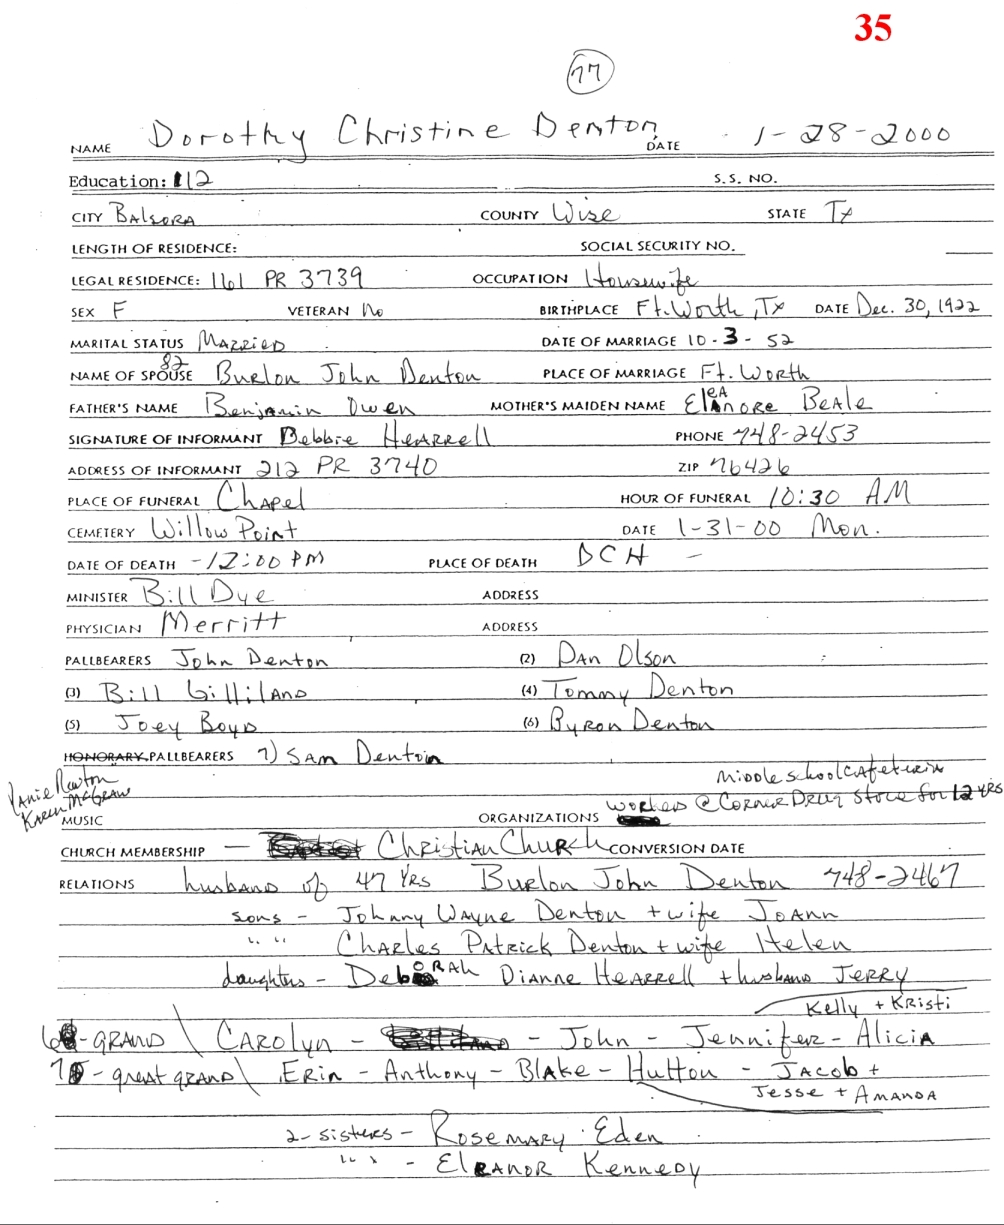 35
77
NAME Dorothy Christine Denton DATE 1-28-2000
Education: 12 S.S. NO.
CITY Balsora COUNTY Wise STATE Tx
LENGTH OF RESIDENCE: SOCIAL SECURITY NO.
LEGAL RESIDENCE: 161 PR 3739 OCCUPATION Housewife
SEX F VETERAN No BIRTHPLACE Ft. Worth, Tx DATE Dec. 30, 1922
MARITAL STATUS MARRIED DATE OF MARRIAGE 10-3-52
82
NAME OF SPOUSE Burlon John Denton PLACE OF MARRIAGE Ft. Worth
FATHER'S NAME Benjamin Owen MOTHER'S MAIDEN NAME Eleanore Beale
SIGNATURE OF INFORMANT Debbie Hearrell PHONE 748-2453
ADDRESS OF INFORMANT 212 PR 3740 ZIP 76426
PLACE OF FUNERAL Chapel HOUR OF FUNERAL 10:30 AM
CEMETERY Willow Point DATE 1-31-00 Mon.
DATE OF DEATH -12:00 PM PLACE OF DEATH DCH -
MINISTER Bill Dye ADDRESS
PHYSICIAN Merritt ADDRESS
PALLBEARERS John Denton (2) Dan Olson
(3) Bill Gilliland (4) Tommy Denton
(5) Joey Boyd (6) Byron Denton
HONORARY PALLBEARERS 7) Sam Denton
Middle school cafeteria
Janie Newton
Karen McGraw
worked @ Corner Drug Store for 12 yrs
MUSIC ORGANIZATIONS
CHURCH MEMBERSHIP - Christian Church CONVERSION DATE
RELATIONS husband of 47 Yrs Burlon John Denton 748-2467
sons - Johnny Wayne Denton + wife JoAnn
" " Charles Patrick Denton + wife Helen
daughters - Deborah Dianne Hearrell + husband Jerry
Kelly + Kristi
6-GRAND \ Carolyn - - John - Jennifer - Alicia
7-great grand \ Erin - Anthony - Blake - Hutton - Jacob +
Jesse + Amanda
2-sisters - Rosemary Eden
" " - Eleanor Kennedy